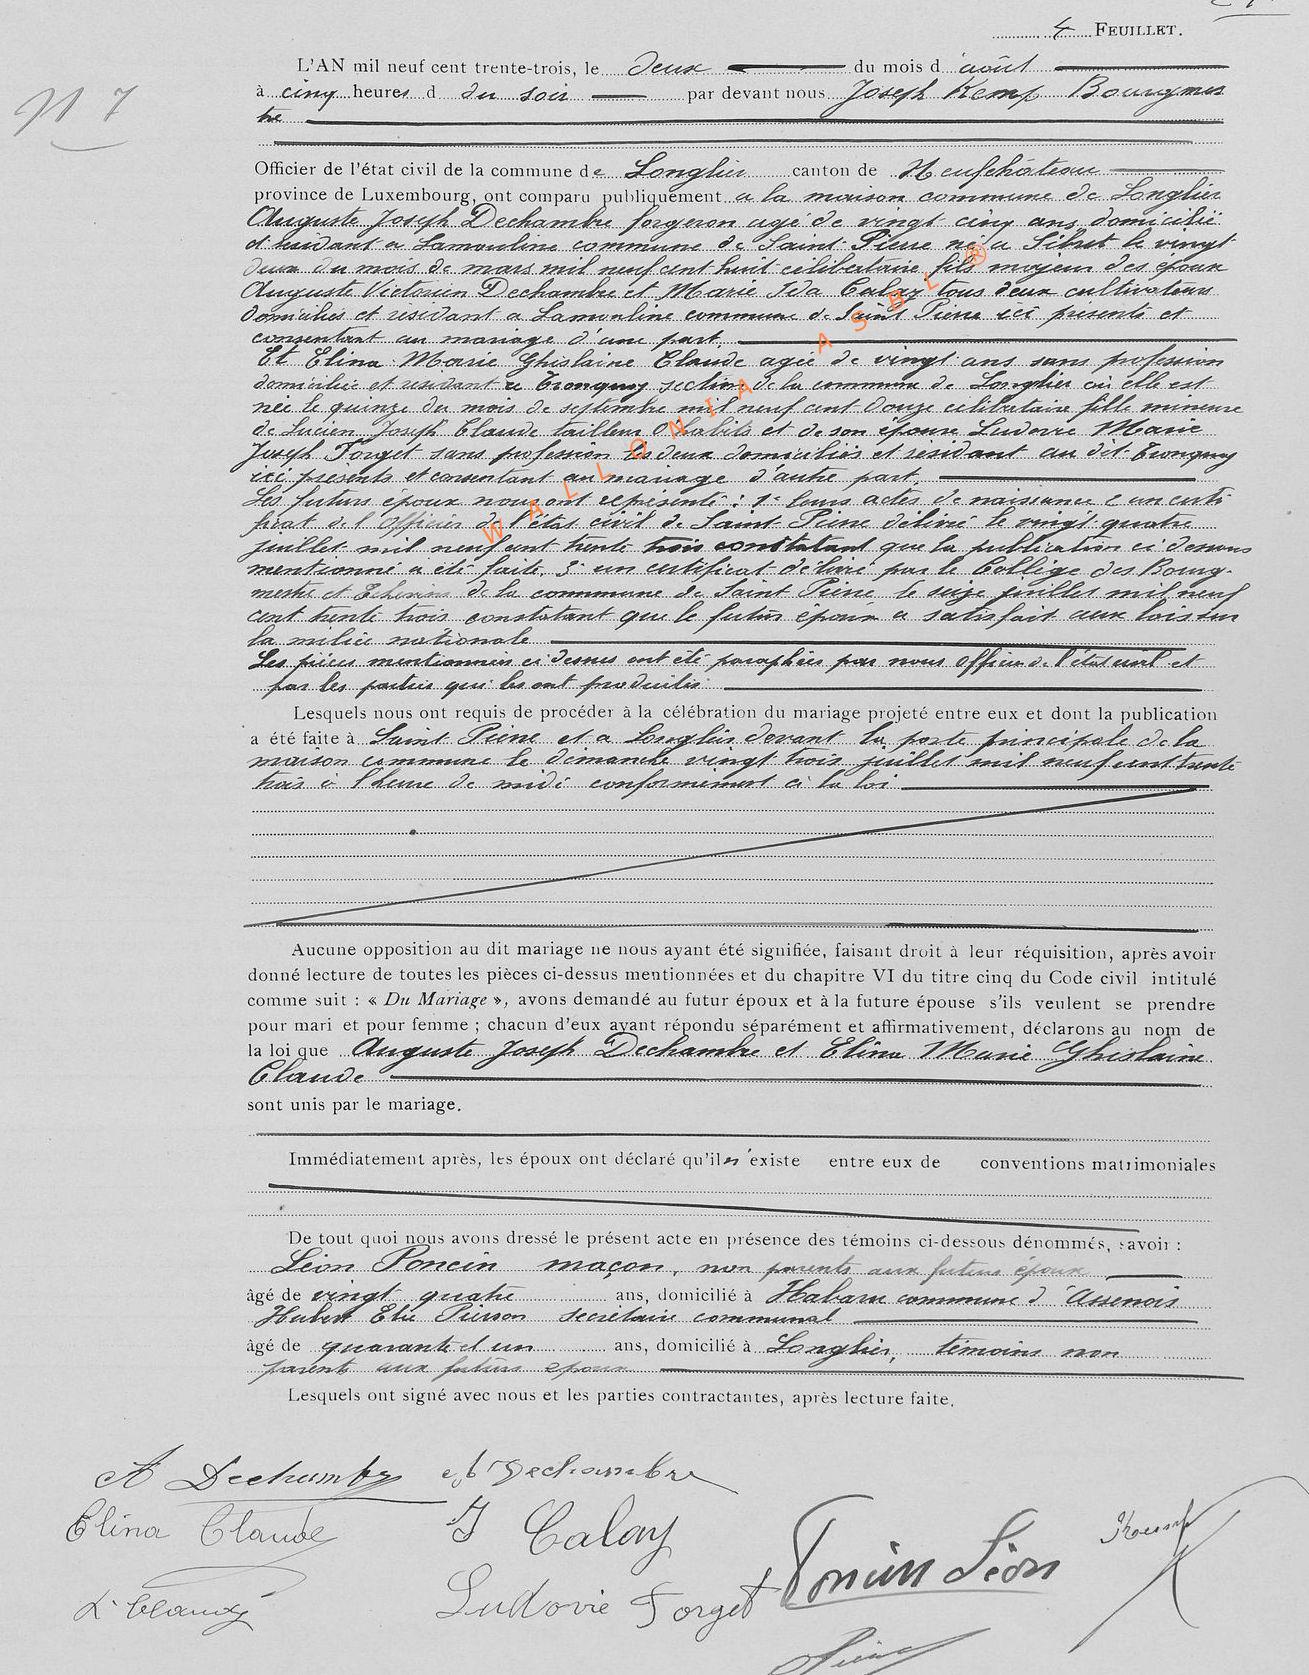 4 FEUILLET.
N 7
L'AN mil neuf cent trente-trois, le deux du mois d'août
à cinq heures d du soir par devant nous Joseph Kemp Bourgmes
tre
Officier de l'état civil de la commune de Longlier canton de Neufchâteau
province de Luxembourg, ont comparu publiquement a la maison commune de Longlier
Auguste Joseph Dechambre forgeron agé de vingt cinq ans, domicilié
et résidant a Lamouline commune de Saint-Pierre né a Sibret le vingt
deux du mois de mars mil neuf cent huit célibertaire fils majeur des époux
Auguste Victorien Dechambre et Marie Ida Calay tous deux cultivateurs
domiciliés et résidant a Lamouline commune de Saint Pierre ici présents et
consentant au mariage d'une part.
Et Elina Marie Ghislaine Claude agée de vingt ans sans profession
domiciliée et résidant a Tronquoy section de la commune de Longlier où elle est
née le quinze du mois de septembre mil neuf cent douze célibataire fille mineure
de Lucien Joseph Claude tailleur d'habits et de son épouse Ludovie Marie
Joseph Forget sans profession les deux domiciliés et résidant au dit Tronquoy
ici présents et consentant au mariage d'autre part.
Les futurs époux nous ont représenté : 1° leurs actes de naissance 2 un certi
ficat de l'Officier de l'état civil de Saint Pierre délivré le vingt quatre
juillet mil neuf cent trente trois constatant que la publication ci dessous
mentionné a été faite. 3° un certificat délivré par le Collège des Bourg-
mestre et Echevins de la commune de Saint Pierre le seize juillet mil neuf
cent trente trois constatant que le futur époux a satisfait aux lois sur
la milice nationale
Les pièces mentionnées ci dessus ont été paraphées par nous Officier de l'état civil et
par les parties qui les ont produites
Lesquels nous ont requis de procéder à la célébration du mariage projeté entre eux et dont la publication
a été faite à Saint Pierre et a Longlier devant la porte principale de la
maison commune le dimanche vingt trois juillet mil neuf cent trente
trois à l'heure de midi conformément à la loi
Aucune opposition au dit mariage ne nous ayant été signifiée, faisant droit à leur réquisition, après avoir
donné lecture de toutes les pièces ci-dessus mentionnées et du chapitre VI du titre cinq du Code civil intitulé
comme suit : « Du Mariage », avons demandé au futur époux et à la future épouse s'ils veulent se prendre
pour mari et pour femme ; chacun d'eux ayant répondu séparément et affirmativement, déclarons au nom de
la loi que Auguste Joseph Dechambre et Elina Marie Ghislaine
Claude
sont unis par le mariage.
Immédiatement après, les époux ont déclaré qu'il n'existe entre eux de conventions matrimoniales
De tout quoi nous avons dressé le présent acte en présence des témoins ci-dessous dénommés, savoir :
Léon Poncin maçon, non parents aux futurs époux
âgé de vingt quatre ans, domicilié à Habaru commune d'Assenois
Hubert Elie Pierson secrétaire communal
âgé de quarante et un ans, domicilié à Longlier, témoins non
parents aux futurs epoux
Lesquels ont signé avec nous et les parties contractantes, après lecture faite.
A Dechambre Dechambre
Elina Claude I Calay Poncin Léon Kemp
L Claude Ludovie Forget
WALLONIA ASBL ®